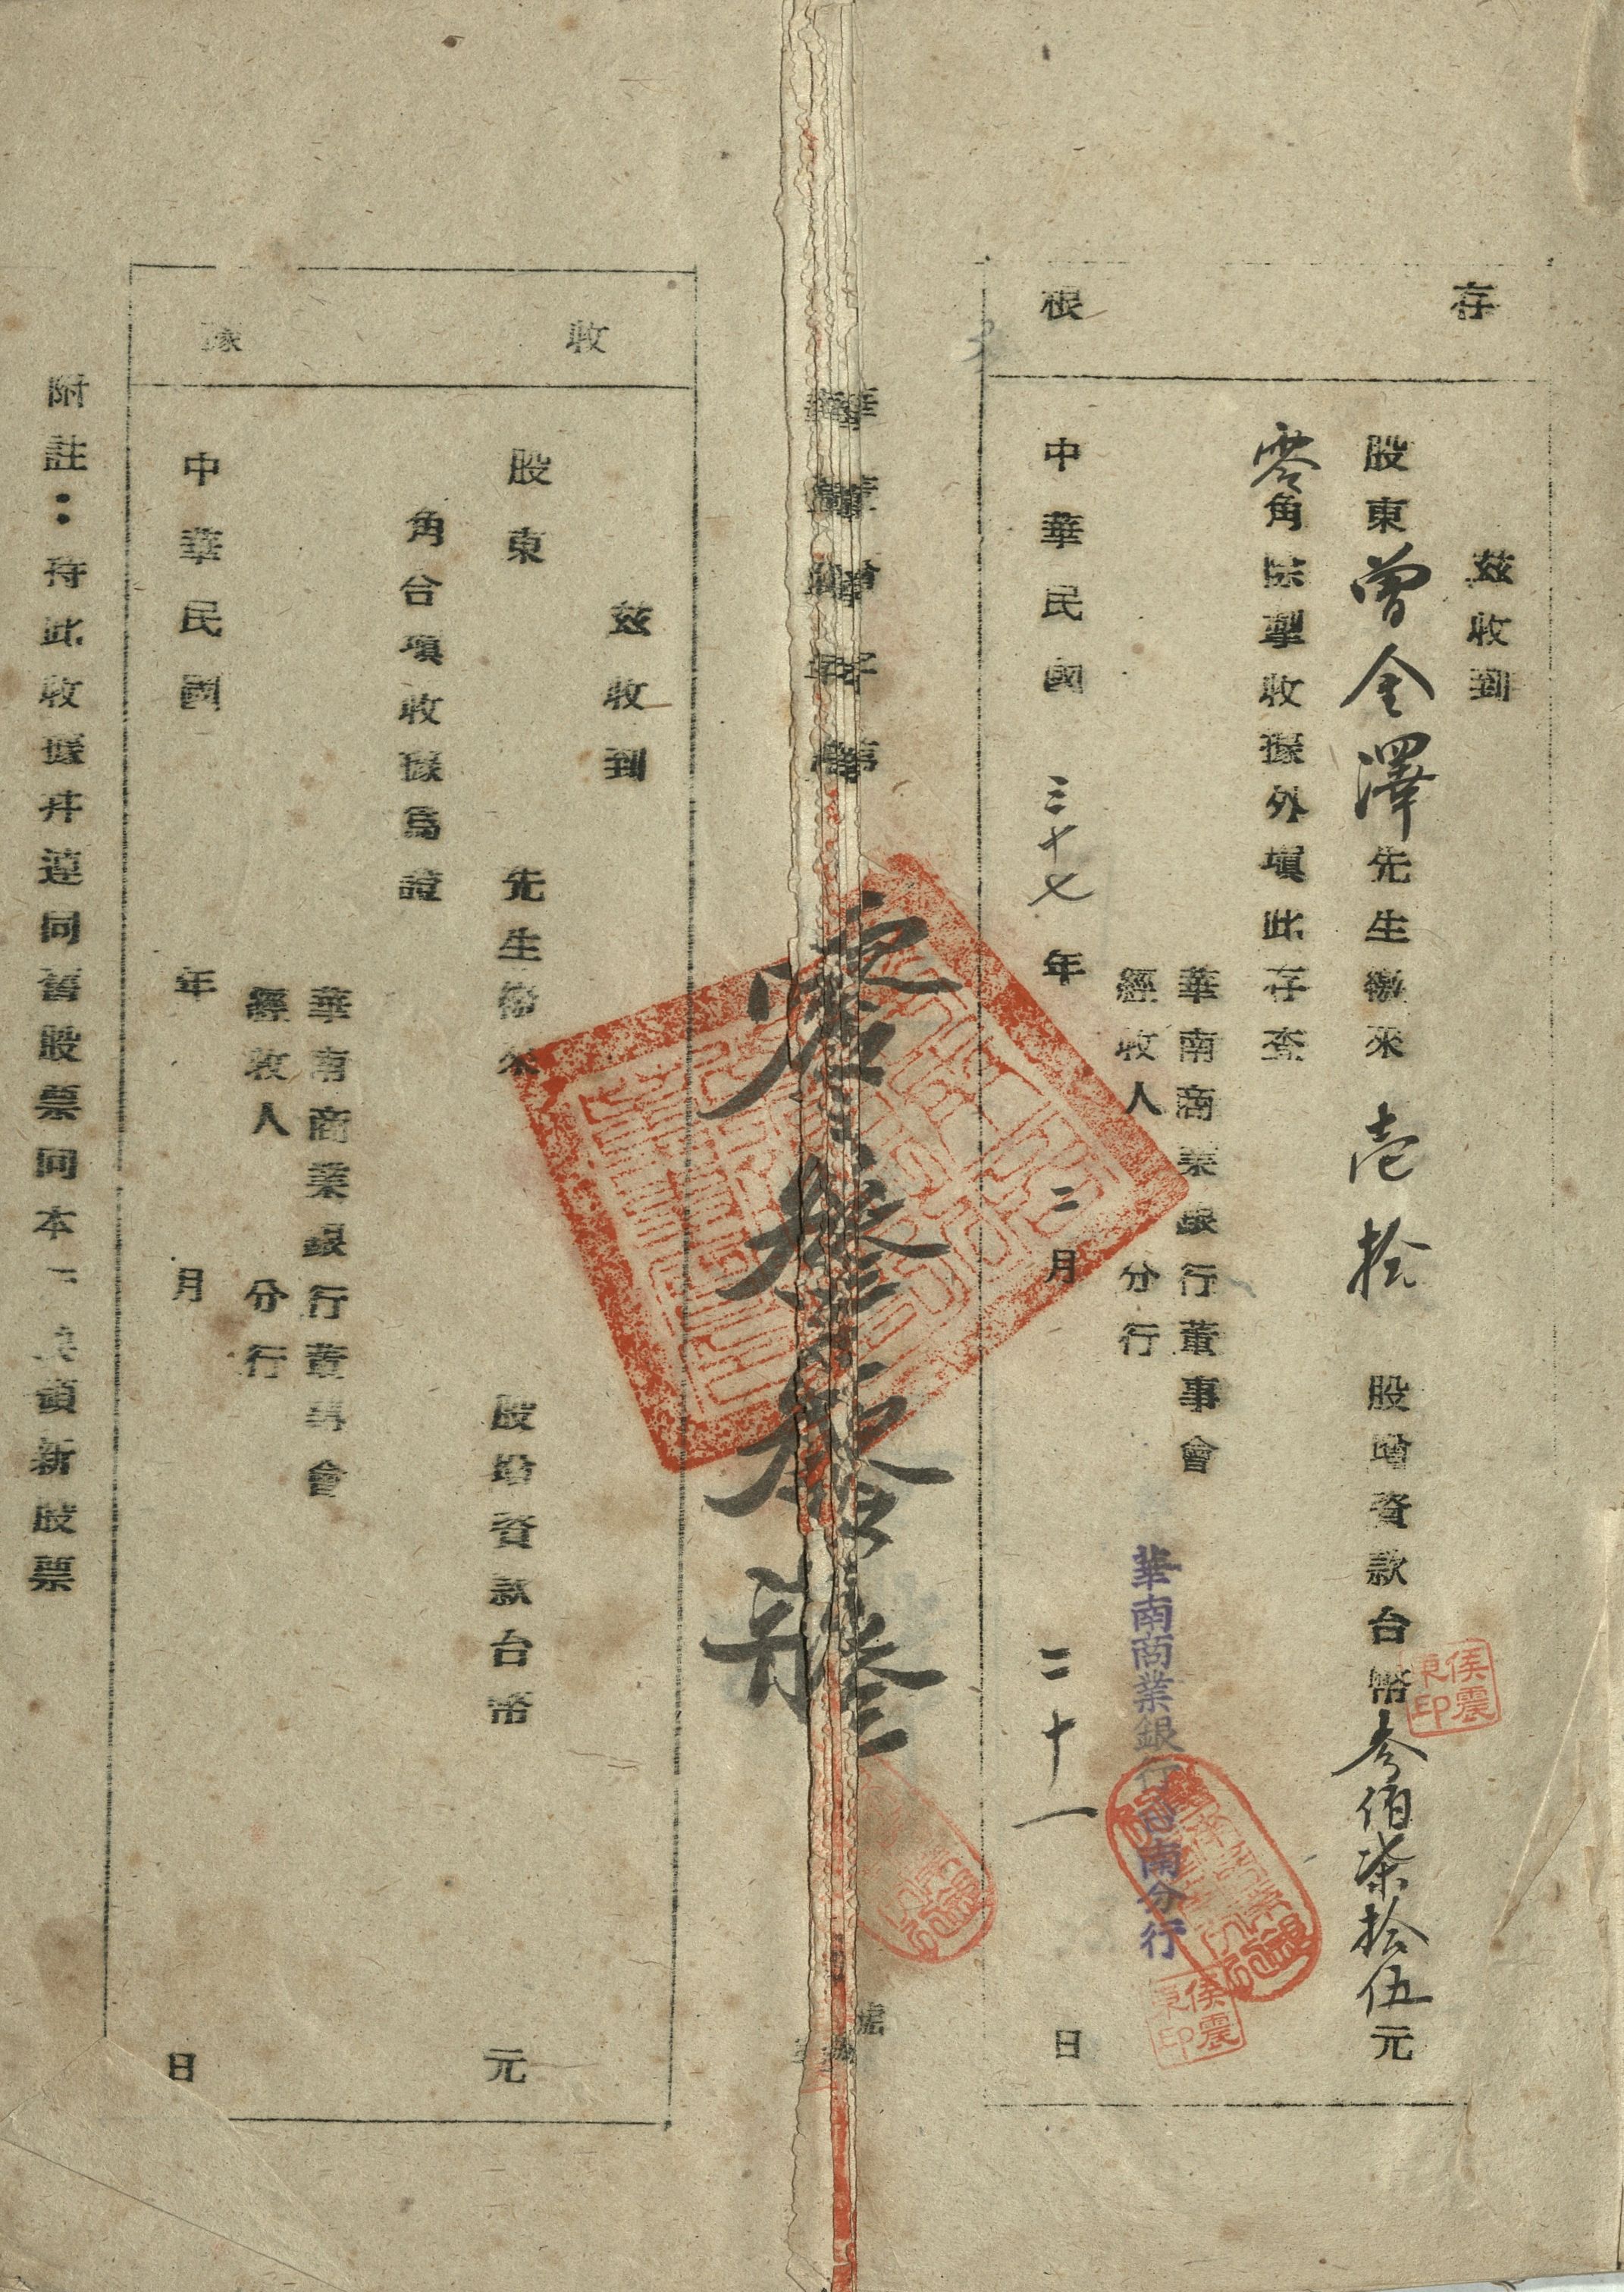 存根
茲收到
股東曾金澤先生繳來壹拾股增資款台幣叁佰柒拾伍元
零角除掣收據外填此存查
華南商業銀行董事會
經收人分行
華南商業銀行台南分行
中華民國三十七年二月二十一日
侯震東印
侯震東印
收據
茲收到
股東先生繳來股增資款台幣元
角台填收據為證
華南商業銀行董事會
經收人分行
中華民國年月日
附註：持此收據并連同舊股票同本換領新股票